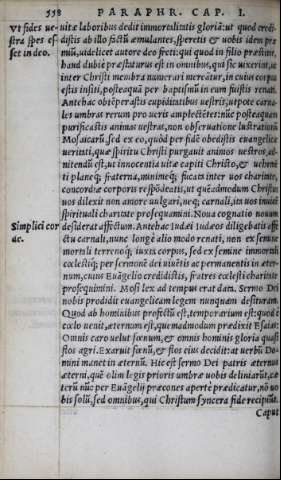 558 PARAPHR. CAP. I.
Vt fides ve-
stra spes es-
set in deo.
uitæ laboribus dedit immortalitatis gloriā: ut quod credi-
distis ab illo factū æmulantes, speretis & uobis idem præ
miū, uidelicet autore deo fretī: qui quod in filio præstitit,
haud dubie præstaturus est in omnibus, qui sic uixerint, ut
inter Christi membra numerari mereātur, in cuius corpus
estis insiti, posteaquā per baptismū in eum fuistis renati.
Antehac obtēperastis cupiditatibus uestris, utpote carna-
les umbras rerum pro ueris amplectētes: nūc posteaquam
purificastis animas uestras, non obseruatione lustrationū
Mosaicarū, sed ex eo, quòd per fidē obedistis euangelicæ
ueritati, quæ spiritu Christi purgauit animos uestros, ad-
nitendū est, ut innocentia uitæ capiti Christo, & uehemē
ti planeq; fraterna, minimeq; fucata inter uos charitate,
concordiæ corporis respōdeatis, ut quēadmodum Christus
uos dilexit non amore uulgari, neq; carnali, ita uos inuicē
spirituali charitate prosequamini. Noua cognatio nouum
Simplici cor
de.
desiderat affectum. Antehac Iudæi Iudæos diligebātis affe
ctu carnali, nunc longè alio modo renati, non ex semine
mortali terrenoq; iuxta corpus, sed ex semine immortali
cœlestiq; per sermonē dei uiuētis ac permanentis in æter-
num, cuius Euāgelio credidistis, fratres cœlesti charitate
prosequimini. Mosi lex ad tempus erat data. Sermo Dei
nobis prodidit euangelicam legem nunquam desituram.
Quod ab hominibus profectū est, temporarium est: quod è
cœlo uenit, æternum est, quemadmodum prædixit Esaias:
Omnis caro uelut fœnum, & omnis hominis gloria quasi
flos agri. Exaruit fœnū, & flos eius decidit: at uerbū Do-
mini manet in æternū. Hic est sermo Dei patris æternus
æterni, quē olim legis prioris umbræ uobis deliniarūt, cæ
terū nūc per Euāgelij præcones apertè prædicatur, nō uo
bis solū, sed omnibus, qui Christum syncera fide recipiūt.
Caput